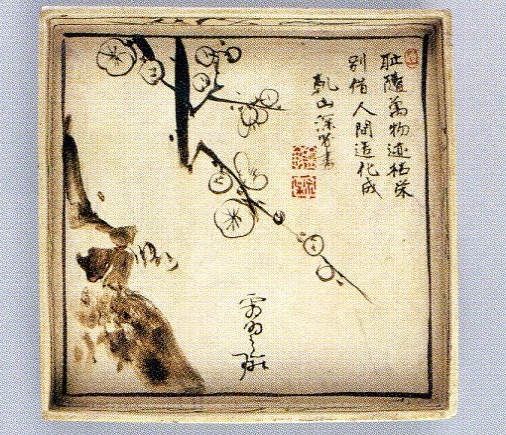 耻隨萬物迹枯栄
別借人間造化成
乾山深省書